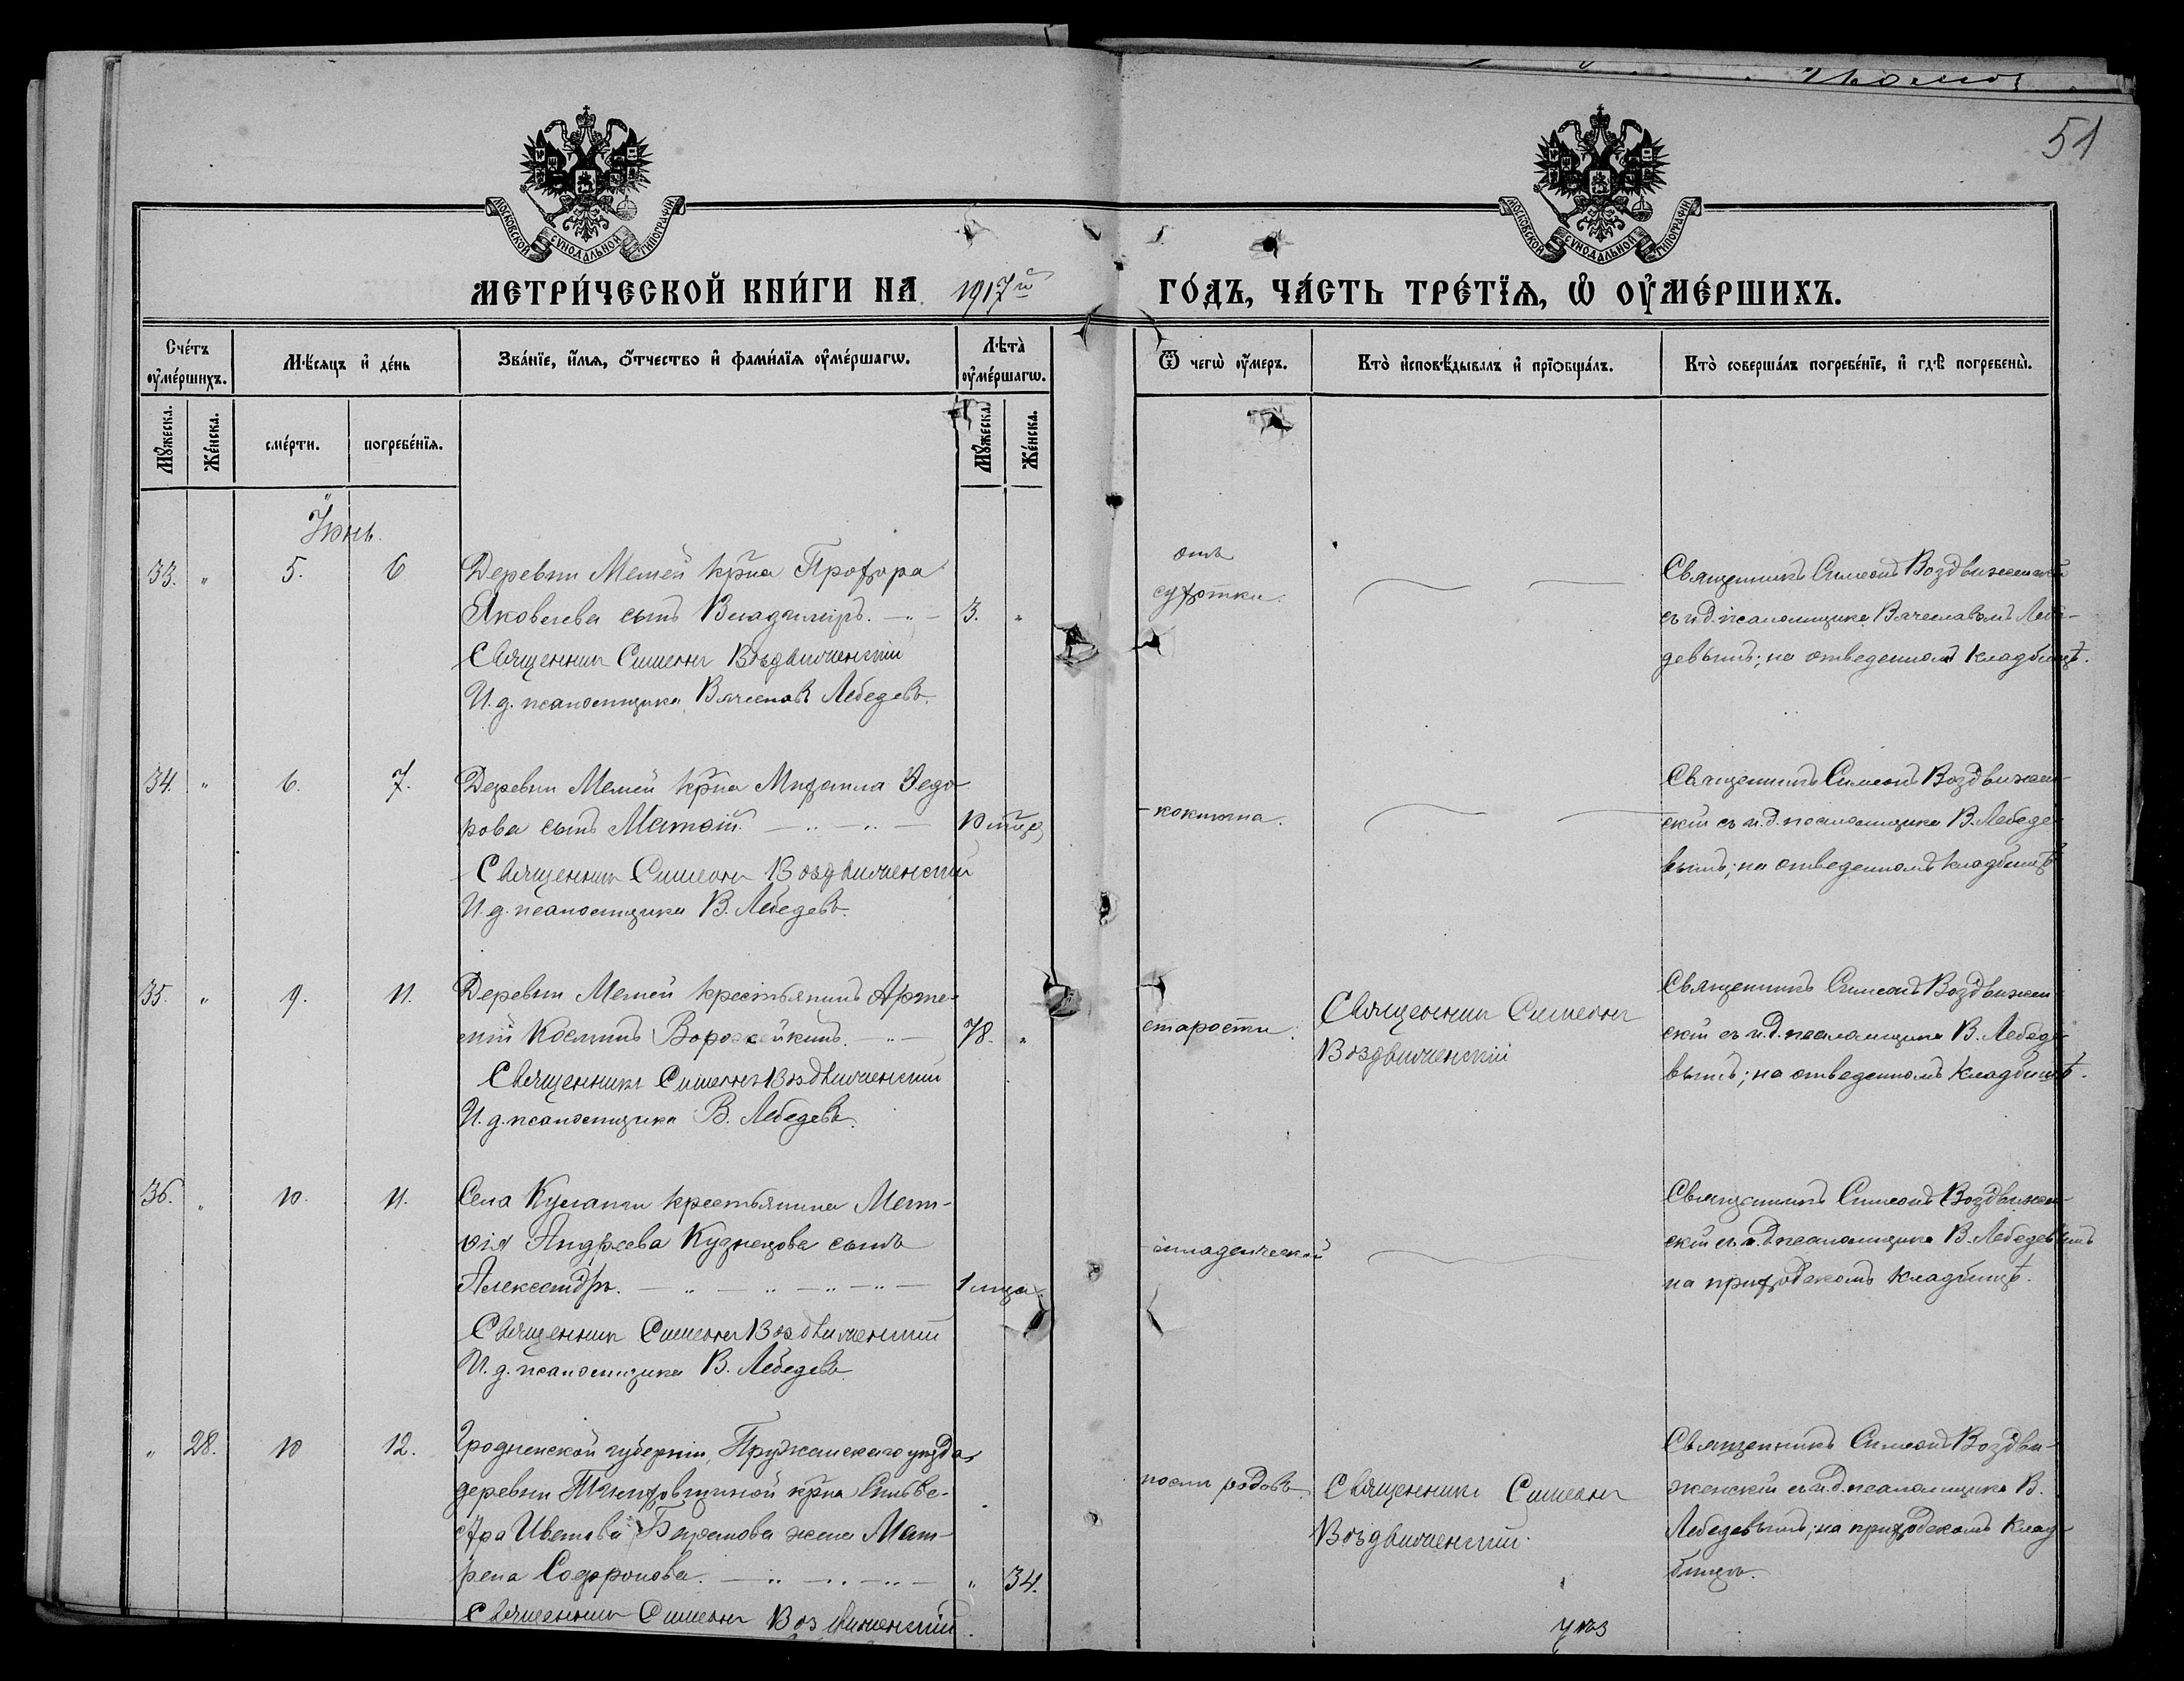 51
МОСКОВСКОЙ СѴНОДАЛЬНОЙ ТИПОГРАФІИ
МОСКОВСКОЙ СѴНОДАЛЬНОЙ ТИПОГРАФІИ
МЕТРИ́ЧЕСКОЙ КНИ́ГИ НА 1917й ГО́ДЪ, ЧА́СТЬ ТРЕ́ТЇѦ, Ѡ҆ ОУ҆МЕ́РШИХЪ.
Сче́тъ оу҆ме́ршихъ.
Мѣ́сяцъ и҆ де́нь
Зва́нїе, и҆́мѧ, ѻ҆́тчество и҆ фами́лїѧ оу҆ме́ршагѡ.
Лѣта̀ оу҆ме́ршагѡ.
Ѿ чегѡ̀ оу҆́меръ.
Кто̀ и҆сповѣ́дывалъ и҆ прїѡбща́лъ.
Кто̀ соверша́лъ погребе́нїе, и҆ гдѣ̀ погребены̀.
Мꙋ́жеска.
Же́нска.
сме́рти.
погребе́нїѧ.
Мꙋ́жеска.
Же́нска.
Іюнь.
33. " 5. 6
Деревни Мемей кр̃на Прохора
Яковлева сынъ Владиміръ. 3. "
Священникъ Симеонъ Воздвиженскій
И. д. псаломщика Вячеславъ Лебедевъ.
отъ
сухотки.
Священникъ Симеонъ Воздвиженскій
съ и.д. псаломщика Вячеславомъ Лебе-
девымъ; на отведенномъ кладбищѣ.
34. " 6. 7.
Деревни Мемей кр̃на Михаила Ѳедо-
рова сынъ Матѳій. 10 мцев
Священникъ Симеонъ Воздвиженскій
И. д. псаломщика В. Лебедевъ.
коклюша.
Священникъ Симеонъ Воздвижен-
скій съ и.д. псаломщика В. Лебеде-
вымъ; на отведенномъ кладбищѣ
35. " 9. 11.
Деревни Мемей крестьянинъ Арте-
мій Косминъ Ворожейкинъ. 78. "
Священникъ Симеонъ Воздвиженскій
И. д. псаломщика В. Лебедевъ.
старости.
Священникъ Симеонъ
Воздвиженскій
Священникъ Симеонъ Воздвижен-
скій съ и.д. псаломщика В. Лебеде-
вымъ; на отведенномъ кладбищѣ.
36. " 10. 11.
Села Куланги крестьянина Мат-
ѳія Андреева Кузнецова сынъ
Александръ. 1 мца.
Священникъ Симеонъ Воздвиженскій
И. д. псаломщика В. Лебедевъ
младенческой
Священникъ Симеонъ Воздвижен-
скій съ и.д. псаломщика В. Лебедевымъ
на приходскомъ кладбищѣ.
" 28. 10 12.
Гродненской губерніи, Пружанскаго уѣзда,
деревни кр̃на Сильве-
стра Иванова жена Мат-
рена Софронова. " 34.
Священникъ Симеонъ Воздвиженскій.
послѣ родовъ.
Священникъ Симеонъ
Воздвиженскій.
Священникъ Симеонъ Воздви-
женскій съ и.д. псаломщика В.
Лебедевымъ; на приходскомъ клад-
бищѣ.